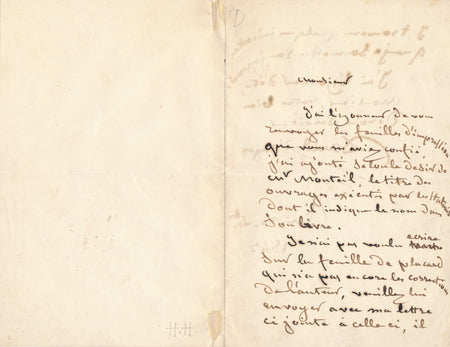 D
Monsieur
J'ai l'honneur de vous
renvoyer les feuilles d'impression
que vous m'aviez confié,
j'ai ajouté selon le désir de
Mr Monteil, le titre des
ouvrages exécutés par les
dont il indique le nom dans
son livre.
Je n'ai pas voulu écrire
sur la feuille de placard
qui n'a pas encore les corrections
de l'auteur, veuillez lui
envoyer avec ma lettre
ci jointe à celle ci, il
H.H